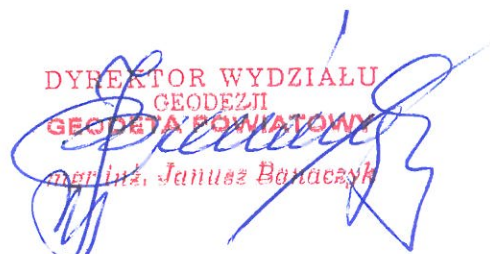 DYREKTOR WYDZIAŁU
GEODEZJI
GEODETA POWIATOWY
mgr inż. Janusz Banaczyk